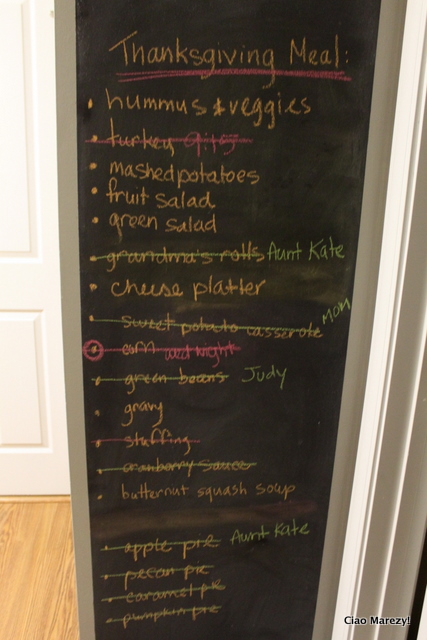 Thanksgiving Meal:
hummus & veggies
turkey 9:15
mashed potatoes
fruit salad
green salad
grandma's rolls Aunt Kate
cheese platter
sweet potato casserole Mom
corn wed night
green beans Judy
gravy
stuffing
cranberry sauce
butternut squash soup
apple pie Aunt Kate
pecan pie
caramel pie
pumpkin pie
Ciao Marezy!